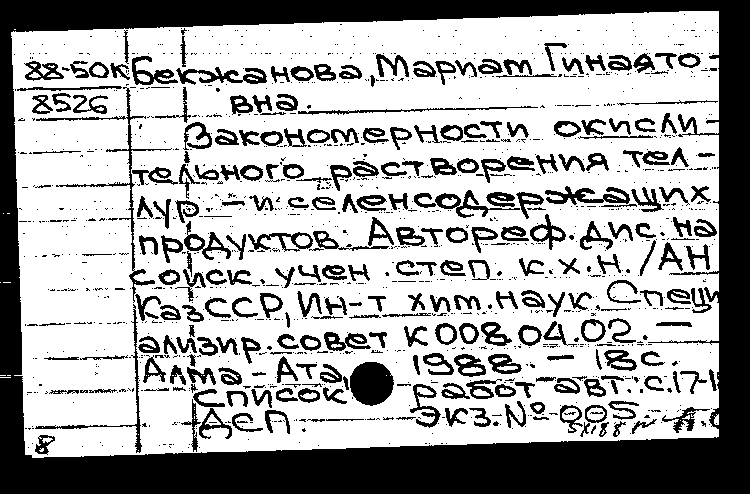 88-50К Бекжанова, Мариам Гинаято-
8526 вна.
Закономерности окисли-
тельного растворения тел-
лур - и селенсодержащих
продуктов: Автореф. дис. на
соиск. учен. степ. к.х.н. /АН
КазССР, Ин-т хим. наук. Специ
ализир. совет К 008.04.02. —
Алма-Ата, 1988. — 18 с.
Список работ авт.: с. 17-1
Деп. Экз. № 005.
8